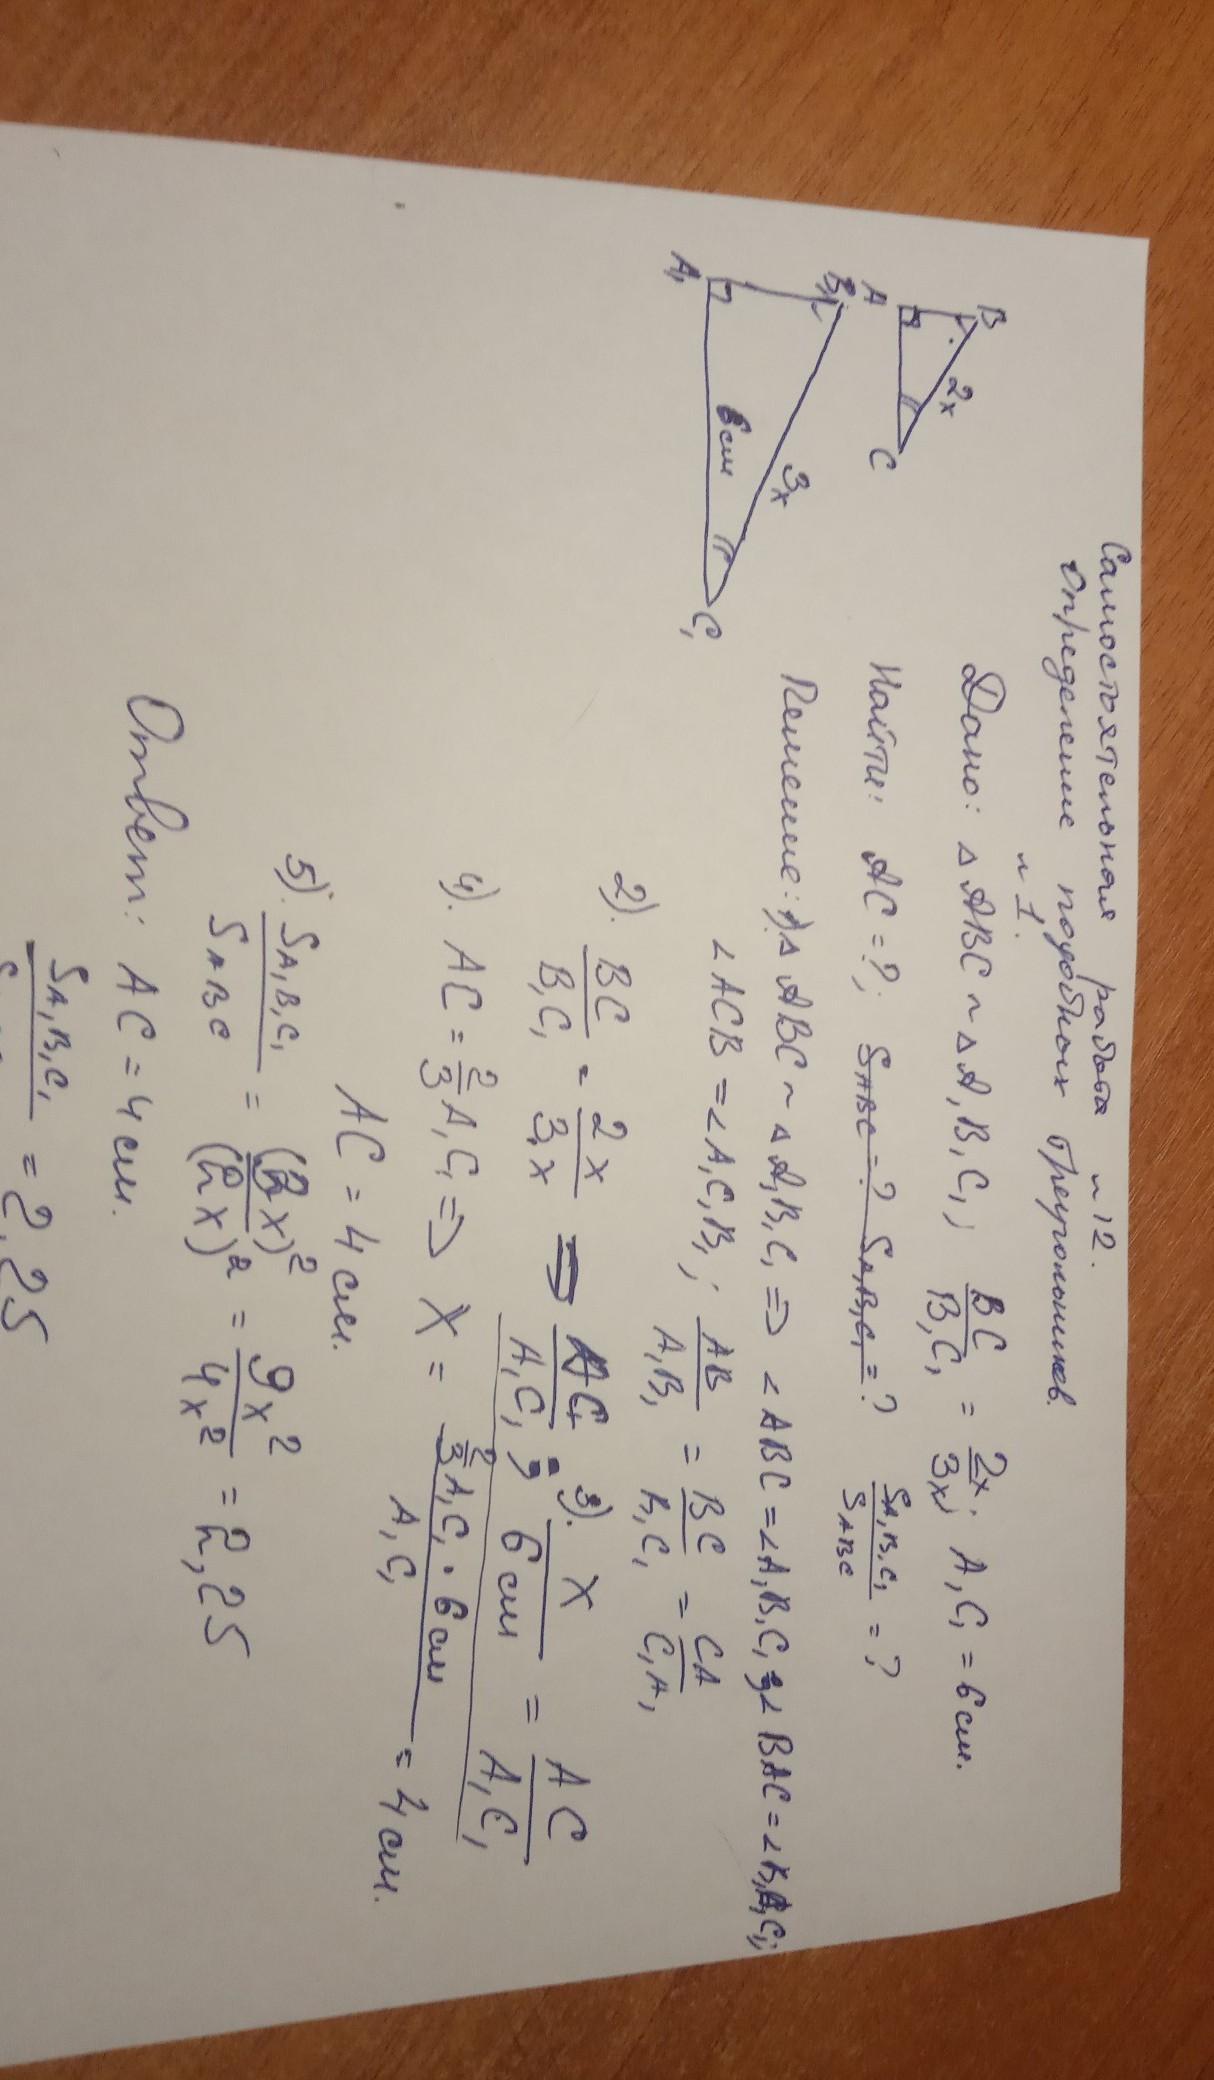 Самостоятельная работа н 12.
Определение подобных треугольников.
н 1.
Дано: △ ABC ~ △ A₁B₁C₁; BC/B₁C₁ = 2x/3x; A₁C₁ = 6 см.
Найти: AC = ?; S_ABC = ? S_A₁B₁C₁ = ? S_A₁B₁C₁/S_ABC = ?
Решение: 1). △ ABC ~ △ A₁B₁C₁ ⇒ ∠ ABC = ∠ A₁B₁C₁; ∠ BAC = ∠ B₁A₁C₁;
∠ ACB = ∠ A₁C₁B₁; AB/A₁B₁ = BC/B₁C₁ = CA/C₁A₁
2). BC/B₁C₁ = 2x/3x ⇒ AC/A₁C₁; 3). x/6 см = AC/A₁C₁
4). AC = 2/3 A₁C₁ ⇒ x = 2/3 A₁C₁ · 6 см/A₁C₁ = 4 см.
AC = 4 см.
5). S_A₁B₁C₁/S_ABC = (3x)²/(2x)² = 9x²/4x² = 2,25
Ответ: AC = 4 см.
S_A₁B₁C₁ = 2,25
B
2x
A
C
B₁
3x
6 см
A₁
C₁